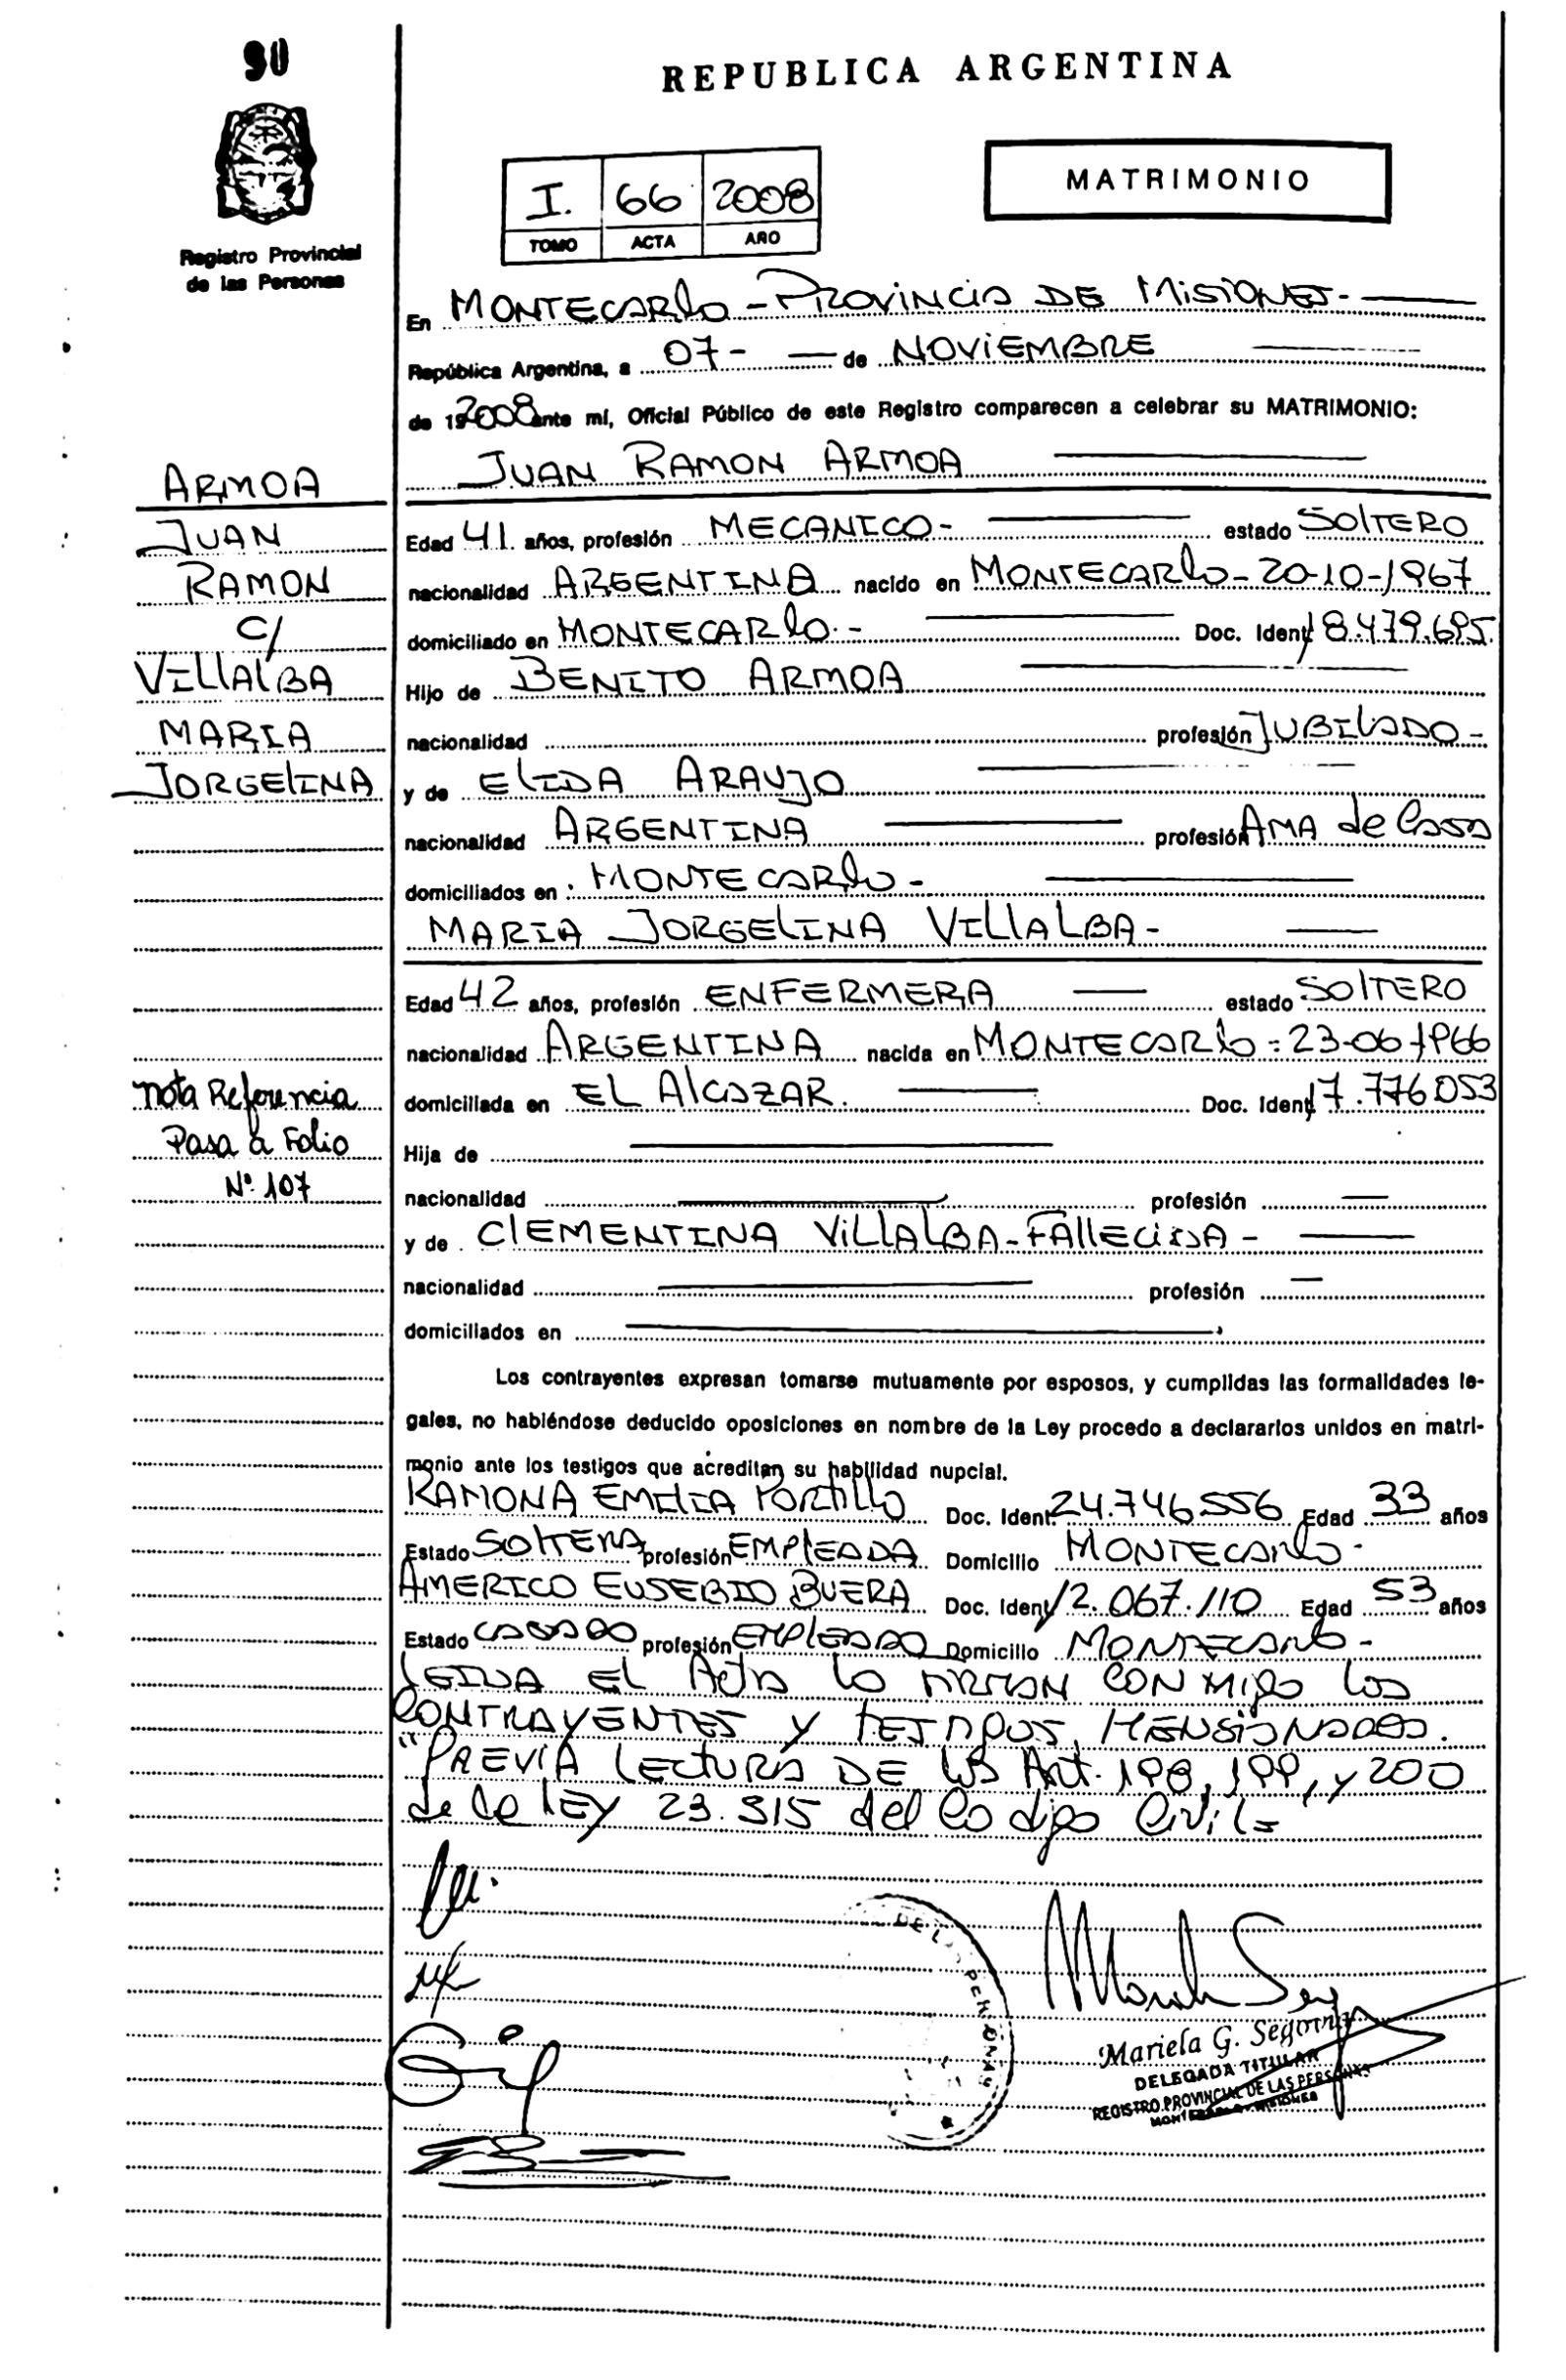 90
REPUBLICA ARGENTINA
Registro Provincial
de las Personas
I. 66 2008
TOMO ACTA AÑO
MATRIMONIO
En MONTECARLO - PROVINCIA DE MISIONES -
República Argentina, a 07- de NOVIEMBRE
de 19 2008 ante mí, Oficial Público de este Registro comparecen a celebrar su MATRIMONIO:
JUAN RAMON ARMOA
Edad 41. años, profesión MECANICO- estado SOLTERO
nacionalidad ARGENTINA nacido en MONTECARLO - 20-10-1967
domiciliado en MONTECARLO - Doc. Ident 18.479.695.
Hijo de BENITO ARMOA
nacionalidad profesión JUBILADO -
y de ELIDA ARAUJO
nacionalidad ARGENTINA profesión AMA de Casa
domiciliados en : MONTECARLO -
MARIA JORGELINA VILLALBA -
Edad 42 años, profesión ENFERMERA estado SOLTERO
nacionalidad ARGENTINA nacida en MONTECARLO = 23-06-1966
domiciliada en EL Alcazar. Doc. Ident 17.776.053
Hija de
nacionalidad profesión
y de CLEMENTINA VILLALBA - FALLECIDA -
nacionalidad profesión
domiciliados en
Los contrayentes expresan tomarse mutuamente por esposos, y cumplidas las formalidades le-
gales, no habiéndose deducido oposiciones en nombre de la Ley procedo a declararlos unidos en matri-
monio ante los testigos que acreditan su habilidad nupcial.
RAMONA EMILIA PORTILLO Doc. Ident. 24.746.556 Edad 33 años
Estado SOLTERA profesión EMPLEADA Domicilio MONTECARLO -
AMERICO EUSEBIO BUERA Doc. Ident 12.067.110 Edad 53 años
Estado CASADO profesión EMPLEADO Domicilio MONTECARLO -
LEIDA EL Acta lo FIRMAN CONMIGO los
CONTRAYENTES Y TESTIGOS MENSIONADOS.
"PREVIA LECTURA DE LOS Art. 198, 199, y 200
de la LEY 23.515 del Codigo Civil =
ARMOA
JUAN
RAMON
C/
VILLALBA
MARIA
JORGELINA
nota Referencia
Pasa a Folio
Nº 107
DE L PERSONAS
Mariela G. Segovia
DELEGADA TITULAR
REGISTRO PROVINCIAL DE LAS PERSONAS
MONTECARLO - MISIONES